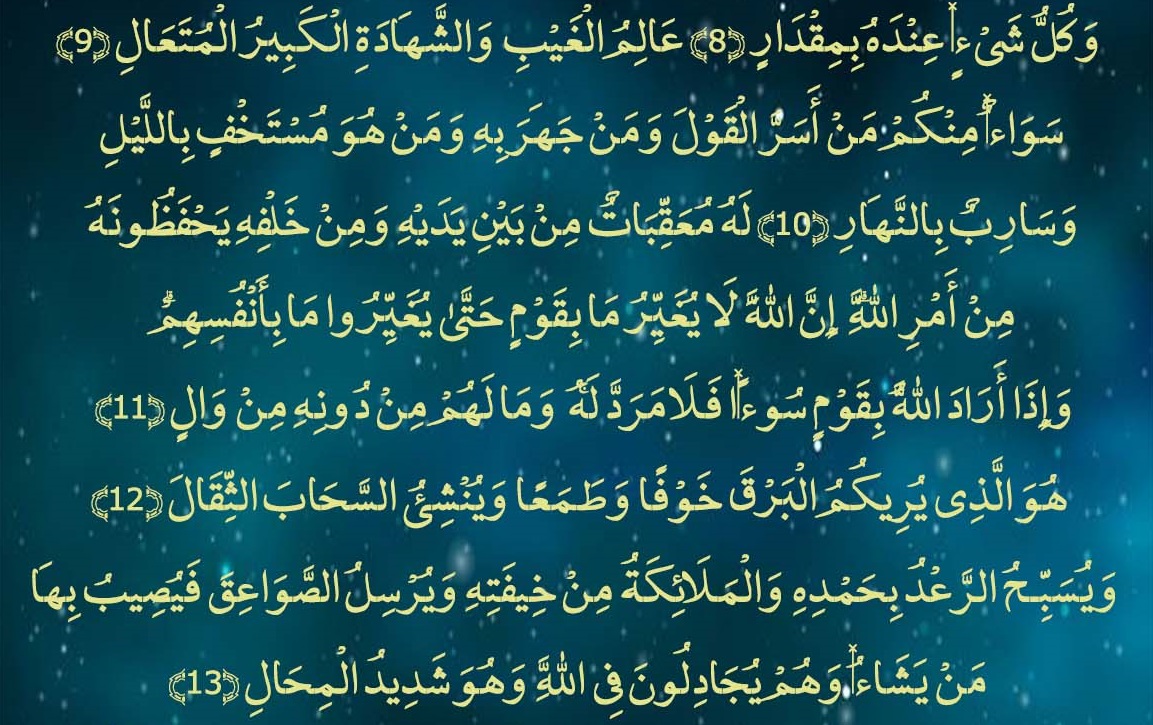 وَكُلُّ شَىْءٍ عِنْدَهُ بِمِقْدَارٍ ﴿8﴾ عَالِمُ الْغَيْبِ وَالشَّهَادَةِ الْكَبِيرُ الْمُتَعَالِ ﴿9﴾
سَوَاءٌ مِنْكُمْ مَنْ أَسَرَّ الْقَوْلَ وَمَنْ جَهَرَ بِهِ وَمَنْ هُوَ مُسْتَخْفٍ بِاللَّيْلِ
وَسَارِبٌ بِالنَّهَارِ ﴿10﴾ لَهُ مُعَقِّبَاتٌ مِنْ بَيْنِ يَدَيْهِ وَمِنْ خَلْفِهِ يَحْفَظُونَهُ
مِنْ أَمْرِ اللهِ إِنَّ اللهَ لَا يُغَيِّرُ مَا بِقَوْمٍ حَتَّىٰ يُغَيِّرُوا مَا بِأَنْفُسِهِمْ
وَإِذَا أَرَادَ اللهُ بِقَوْمٍ سُوءًا فَلَا مَرَدَّ لَهُ وَمَا لَهُمْ مِنْ دُونِهِ مِنْ وَالٍ ﴿11﴾
هُوَ الَّذِى يُرِيكُمُ الْبَرْقَ خَوْفًا وَطَمَعًا وَيُنْشِئُ السَّحَابَ الثِّقَالَ ﴿12﴾
وَيُسَبِّحُ الرَّعْدُ بِحَمْدِهِ وَالْمَلَائِكَةُ مِنْ خِيفَتِهِ وَيُرْسِلُ الصَّوَاعِقَ فَيُصِيبُ بِهَا
مَنْ يَشَاءُ وَهُمْ يُجَادِلُونَ فِى اللهِ وَهُوَ شَدِيدُ الْمِحَالِ ﴿13﴾